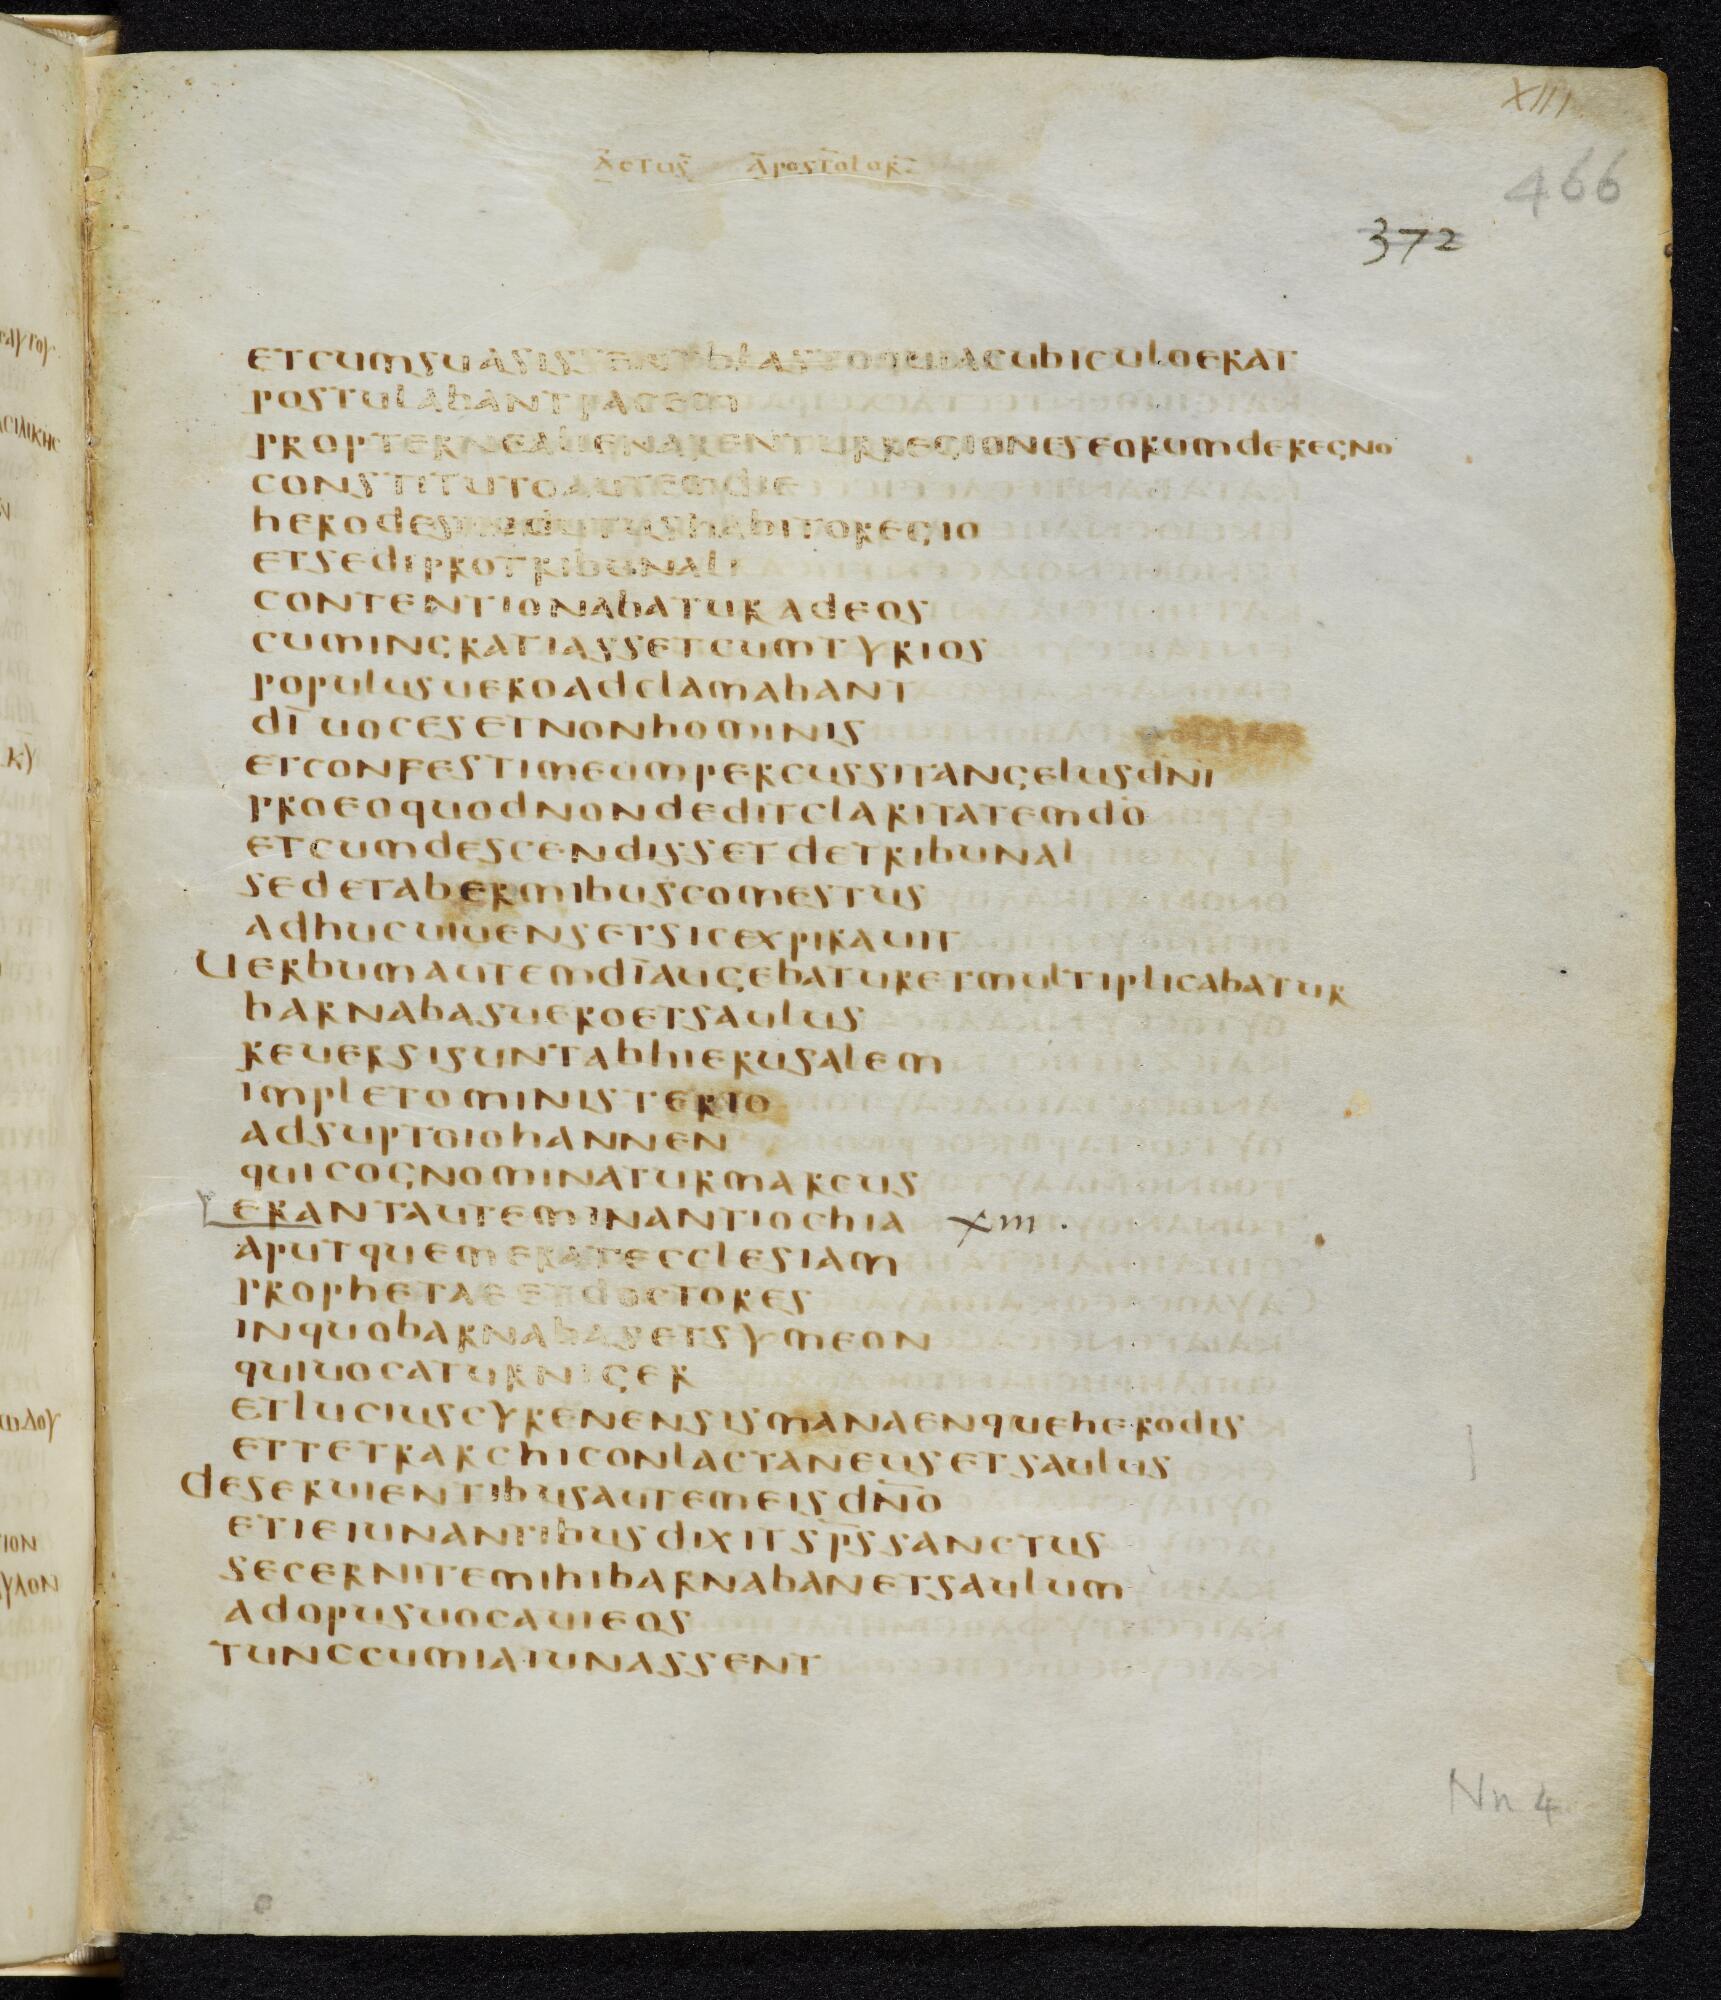 XIII
actus apostolor
466
372
etcumsuasissentblastoquiacubiculoerat
postulabantpacem
propternealienarenturregioneseorumderegno
constitutoautemdie
herodesindutushabitoregio
etsediprotribunali
contentionabaturadeos
cumingratiassetcumtyrios
populusueroadclamabant
dī uocesetnonhominis
etconfestimeumpercussitangelusdn̄i
proeoquodnondeditclaritatemdō
etcumdescendissetdetribunal
sedetabermibuscomestus
adhucuiuensetsicexpirauit
Uerbumautemdīaugebaturetmultiplicabatur
barnabasueroetsaulus
reuersisuntabhierusalem
impletoministerio
adsuptoiohannen
quicognominaturmarcus
erantauteminantiochia xiii.
aputquemeratecclesiam
prophetaeetdoctores
inquobarnabasetsymeon
quiuocaturniger
etluciuscyrenensismanaenqueherodis
ettetrarchiconlactaneusetsaulus
deseruientibusautemeisdn̄o
etieiunantibusdixitsp̄ssanctus
secernitemihibarnabanetsaulum
adopusuocauieos
tunccumiaiunassent
Nn 4